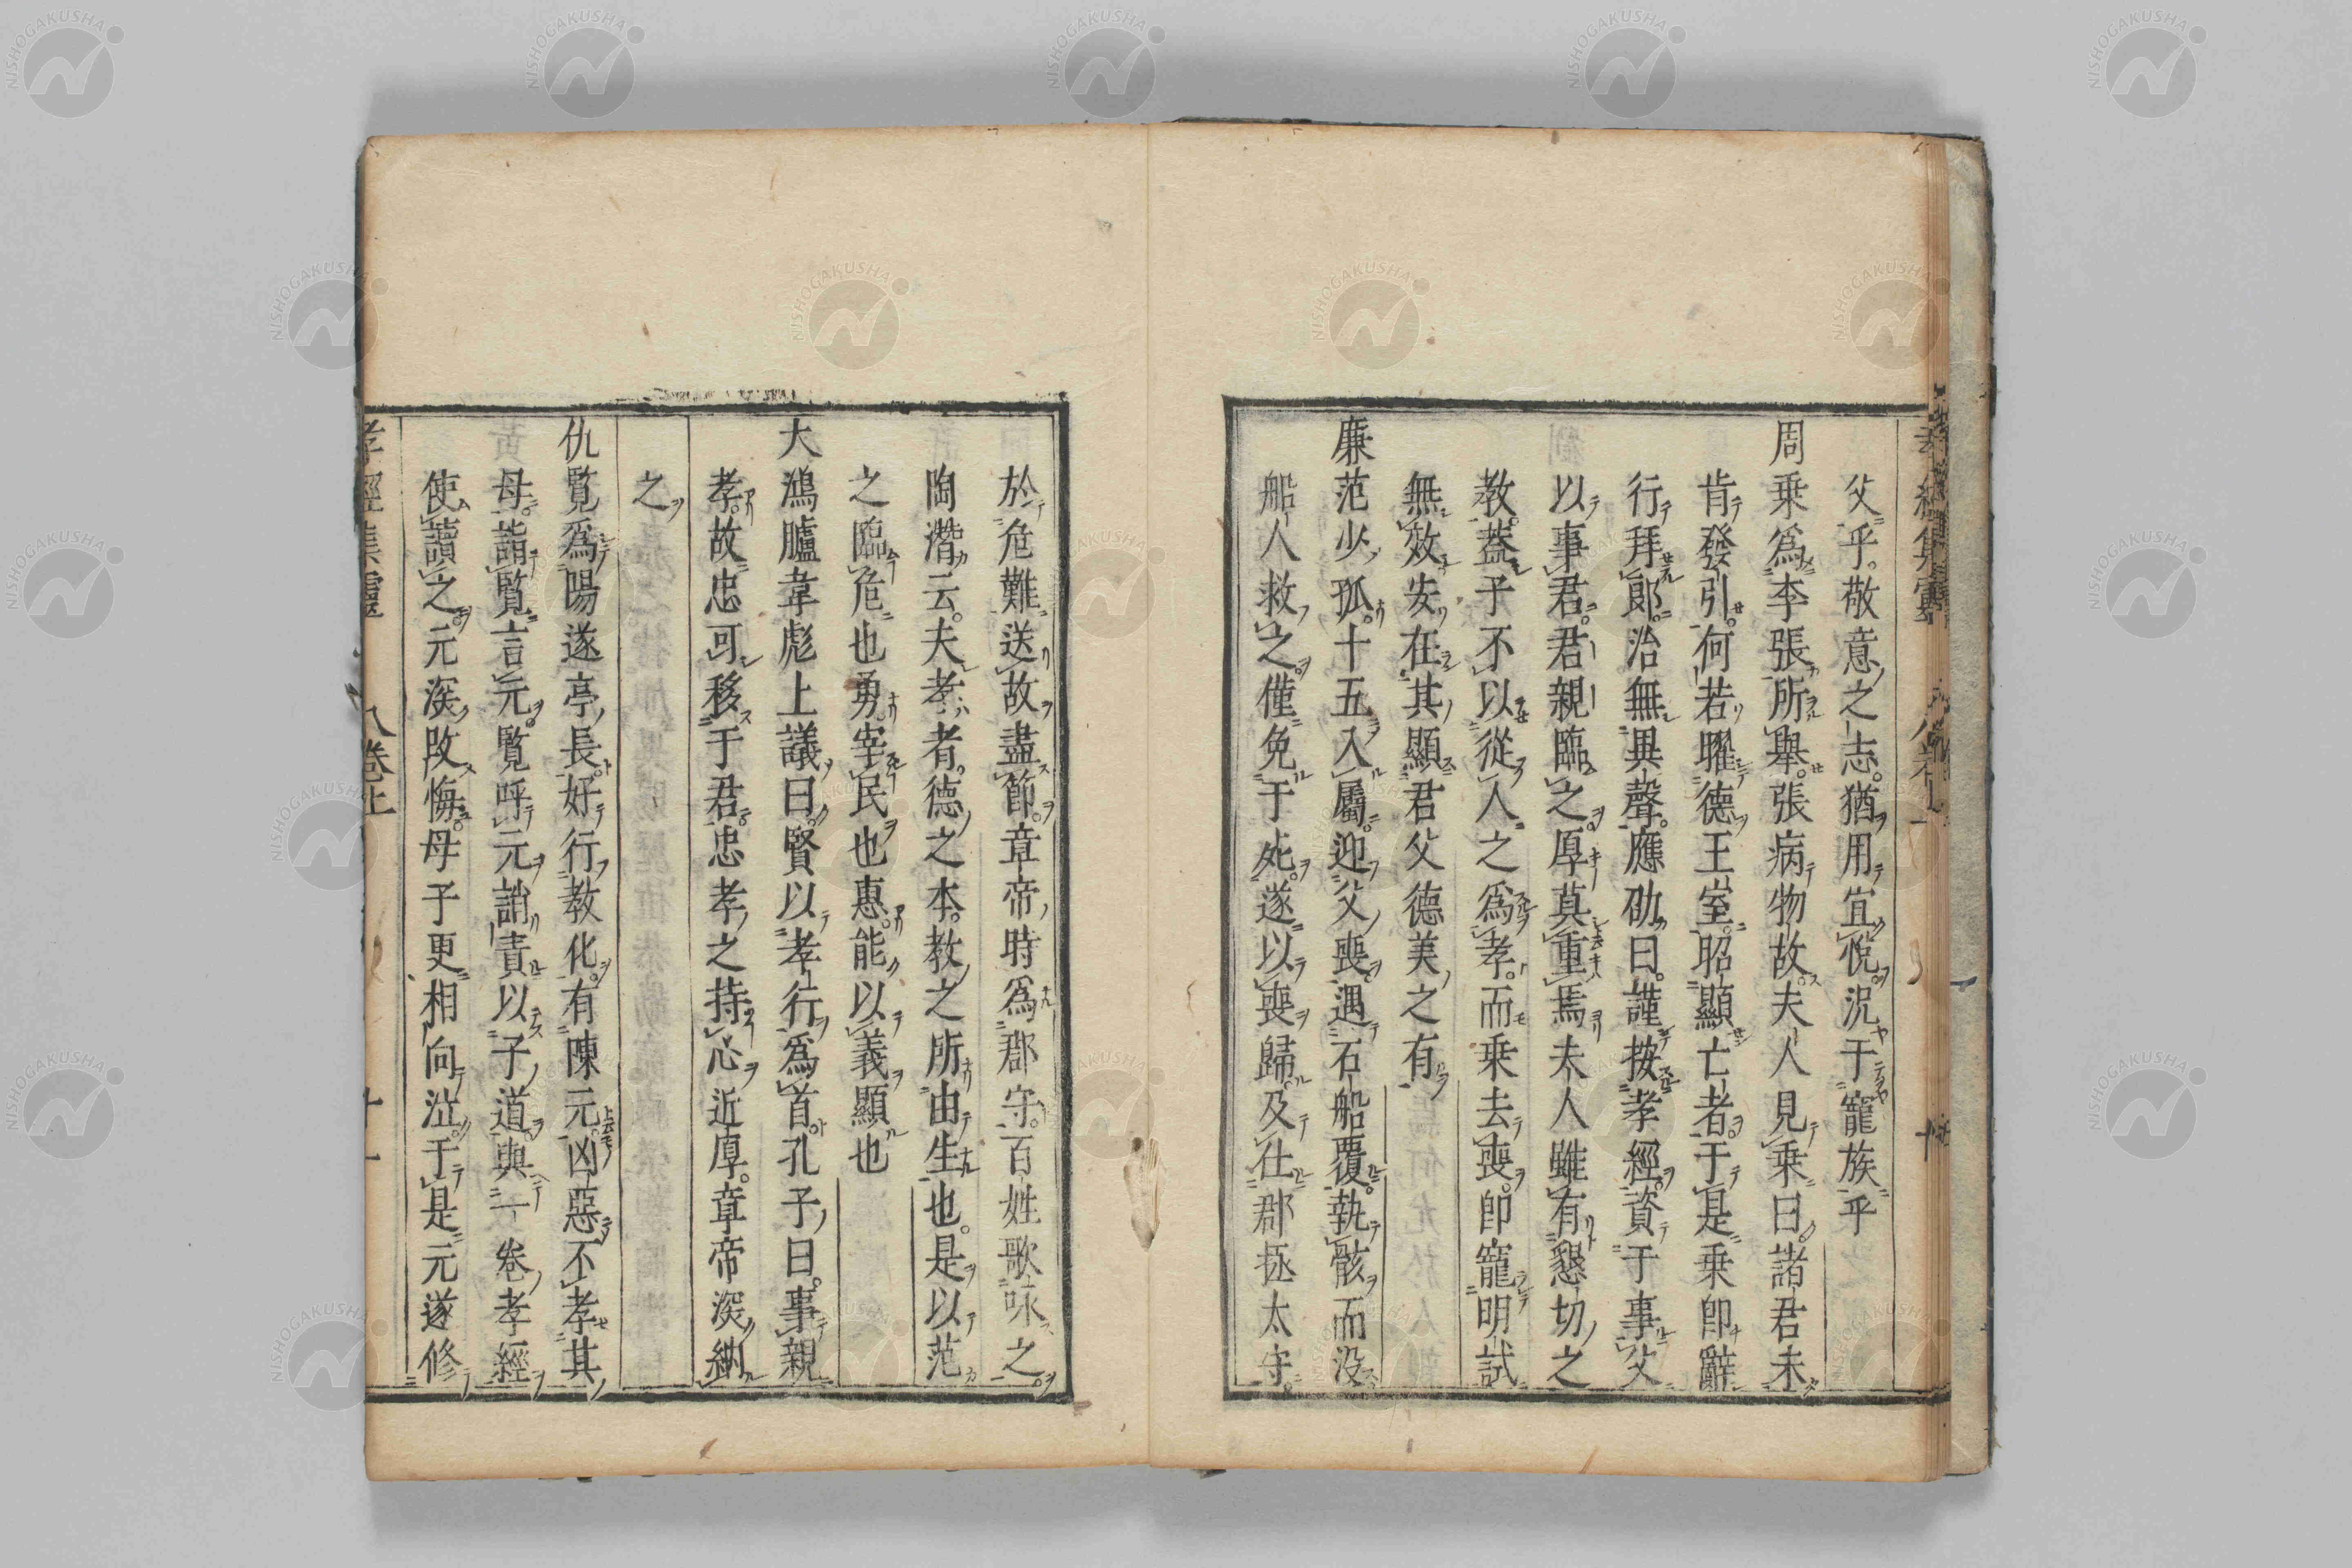 父乎敬意之志猶用宜悅況于寵族乎
周乗爲李張所舉張病物故夫人見乗曰諸君未
肯發引何若曜德王室昭顯亡者于是乗卽辭
行拜郎治無異聲應劭曰謹按孝經資于事父
以事君君親臨之厚莫重焉夫人雖有懇切之
教蓋子不以從人之爲孝而乗去喪卽寵明試
無效安在其顯君父德美之有
廉范少孤十五入屬迎父喪遇石船覆執骸而没
船人救之僅免于死遂以喪歸及仕郡拯太守
於危難送故盡節章帝時爲郡守百姓歌咏之
陶潛云夫孝者德之本教之所由生也是以范
之臨危也勇宰民也惠能以義顯也
大鴻臚韋彪上議曰賢以孝行爲首孔子曰事親
孝故忠可移于君忠孝之持心近厚章帝深納
之
仇覧爲陽遂亭長好行教化有陳元凶惡不孝其
母詣覧言元覧呼元誚責以子道與一卷孝經
使讀之元深改悔母子更相向泣于是元遂修
孝經集靈 卷上 十一
NISHOGAKUSHA